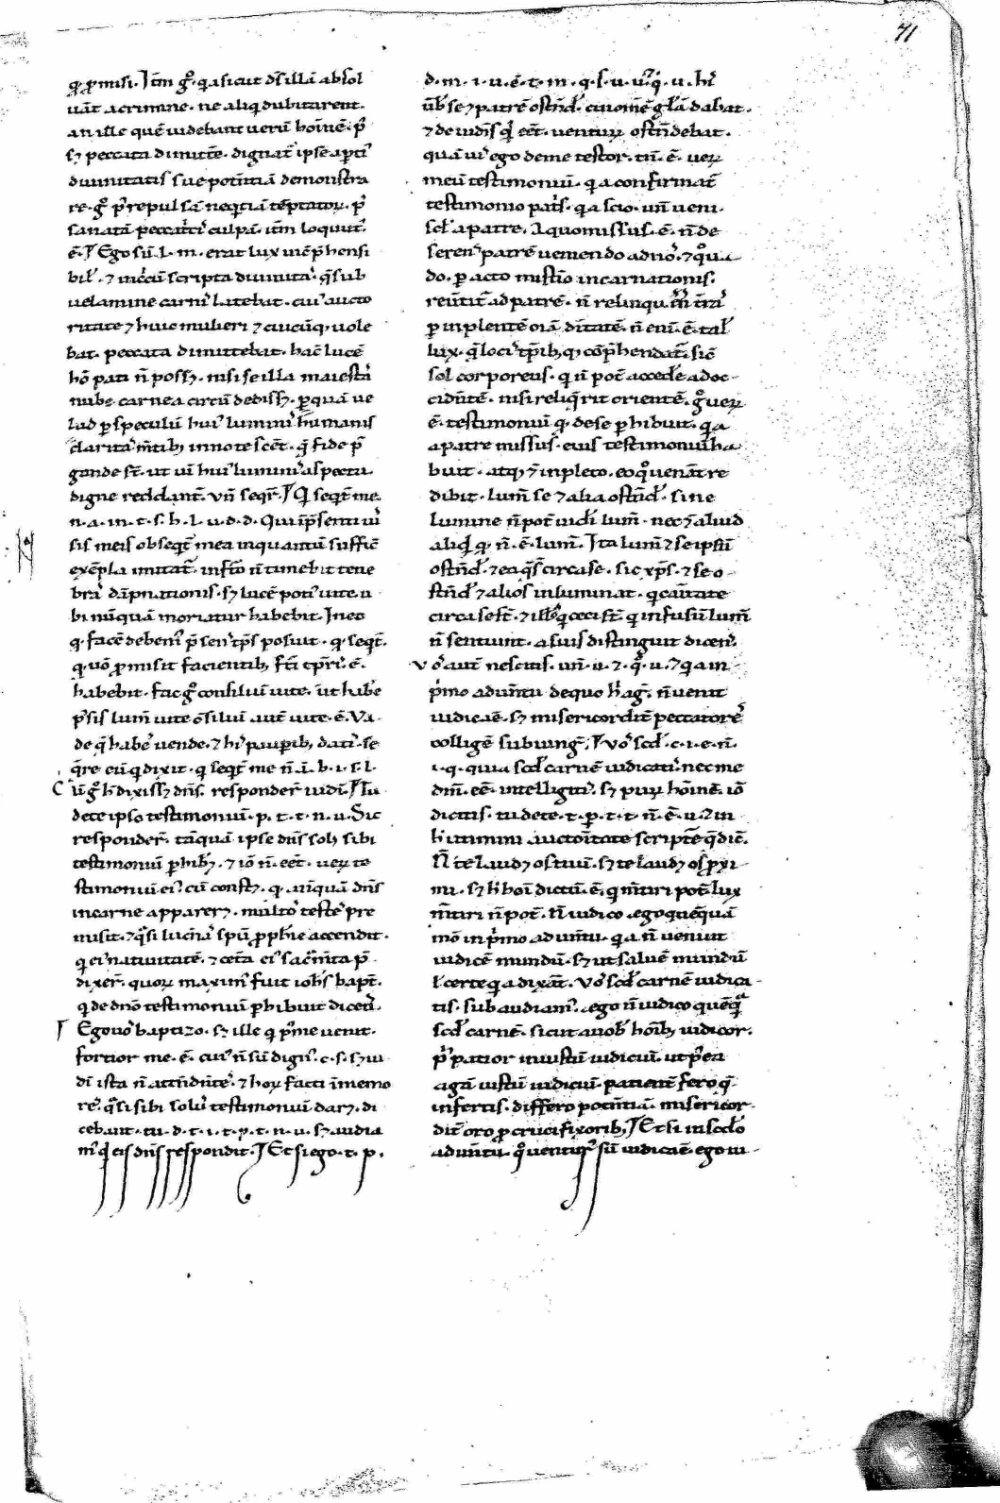 71
q̄ p̄misi. Itm̄ gͦ. q̇a sicut dn̄s illā absol
uāt a crimine. ne aliq̇ dubitarent.
an ille quē uidebant uerū hoīnē. p̄
sꝫ peccata dimittē. dignat̄ ipse apti᷒
diuinitatis sue potn̄tiā demonstra
re. gͦ p᷒ repulsā neqtiā tēptatoꝝ. p᷒
sanatā peccati᷒ culpā. itm̄ loquit᷒.
ē. Ego sū. l. m. erat lux incōp̄hensi
bil᷒. ⁊
uelamine carni᷒ latebat. cui᷒ aucto
ritate ⁊ huic mulieri ⁊ cuicūq, uole
bat. peccata dimittebat. hanc lucē
hō pati n̄ possꝫ. nisi se illa maiestati᷒
nube carnea circūdedissꝫ. p̱quā ue
lud p̱ speculū hui᷒ lumini᷒ humanis
clarita᷒ mn̄tibꝫ innotescēt. q̇ fide p̄
gande st̄. ut uī hui᷒ lumini᷒ aspectū
digne reddant̄. vn̄ seqr̄. Qi seqt̄ me.
n. a. in. t. s. h. l. u. d. d. Qui in p̄senti ui᷒
sis meis obseqt̄ mea inquantū suffic̄
exēpla imitat̄. infcō n̄ timebit tene
bra᷒ dāpnationis. sꝫ lucē poti᷒ uite. u
bi nūquā moriatur habebit. In eo
q̇ facē debem᷒ p̄sen᷒ tp̄s posuit. q̇. seqt̄.
q̇ uō p̄misit facientibꝫ
habebit. fac gͦ consiliū uite. ut habe᷒
p᷒sis lum̄ uite ōsiliū aut̄ uite. ē. Va
de q̄ habe᷒ uende. ⁊ hi᷒ paupib, dati᷒. se
q̄re eū q̇ dixit. q̇ seqt̄ me n̄. i. b. i. s. l.
Cū gͦ h̄ dixissꝫ dn̄s. responder̄ iudi᷒. Tu
de te ipso testimoniū. p. t. t. n. u. Sic
responder̄. tāquā ipse dn̄s sol᷒, sibi
testimoniū p̱hibꝫ. ⁊ iō n̄. eēt. ueꝝ te
stimoniū ei᷒. cū constꝫ. q̇. nūquā dn̄s
in carne apparerꝫ. multo᷒ teste᷒ pre
misit. ⁊ q̇si luc̄na᷒ spū p̱phīe accendit.
q̇ ei᷒ natiuitatē. ⁊ cēta ei᷒ sacm̄ta p̄
dixer̄. quoꝝ maxim᷒ fuit ioh̄s bapt̄.
q̇ de dn̄o testimoniū p̱hibuit dicen᷒.
Ego uō᷒ baptizo. sꝫ ille q̇ p᷒ me uenit.
fortior me. ē. cui᷒ n̄ sū dign᷒. c. s. sꝫ iu
di᷒ ista n̄ attn̄dn̄te᷒. ⁊ hoꝝ facti in memo
re᷒. q̇si sibi solu᷒ testimoniū darꝫ. di
cebant. tu. d. t. i. t. p. t. n. u. sꝫ audia
m᷒ q̇d eis dn̄s respondit. Et si ego. t. p.
d. m. i. u. ē. t. m. q. s. u. u. q̇. u. h᷒
ūb᷒ se ⁊ patrē ostn̄d᷒. cui omē gl̄ā dabat.
⁊ de iudi᷒s q̇d eēt. uentuꝝ ostn̄debat.
quā uī ego de me testor. tn̄. ē. ueꝝ
meū testimoniū. q̇a confirmat̄
testimonio pat᷒s. q̇a scio. un̄ ueni.
scl̄. a patre. A quo missus. ē. n̄ de
seren᷒ patrē ueniendo ad nō᷒. ⁊ qͦua
do. p̱acto mistīo incarnationis.
reūtit᷒ ad patrē. n̄ relinqu
p̱ inplentē oīa dītatē. n̄ enī. ē. tal᷒
lux. q̇ loci᷒ tp̄rib, q, cōp̄hendat̄. sic̄
sol corporeus. q̇ n̄ pot̄ accedē ad oc
cidn̄tē. nisi reliq̇rit orientē. gͦ ueꝝ
ē. testimoniū q̇. de se p̱hibuit. q̇a
a patre missus. eius testimoniū ha
buit. atq, ⁊ inpleto. eo qͦ uenat̄ re
dibit. Lum̄ se ⁊ alia ostn̄d᷒. sine
lumine n̄ pot̄ uidi᷒ lum̄. nec ⁊ aliud
aliq̇d q̇. n̄. ē. lum̄. Ita lum̄ ⁊ se ipsū
ostn̄d᷒ ⁊ ea q̇s circa se. sic xp̄s. ⁊ se o
stn̄d᷒ ⁊ alios inluminat.
circa se st̄. ⁊ illo᷒ q̇ ceci st̄. q̇ infusū lum̄
n̄ sentiunt. a suis distinguit dicen᷒.
vō᷒ aut̄ nescitis. un̄. u. ⁊. q̇. u. ⁊ q̇a in
p᷒mo adun̄tu de quo h᷒ aḡt. n̄ uenit
iudicaē. sꝫ misericordit̄ peccatore᷒
colligē subiunḡt. Vō᷒ scd᷒. c. i. e. n̄.
i. q. quia scd᷒ carnē iudicati᷒. nec me
dm̄. eē. intelligiti᷒. sꝫ puꝝ hoīnē. iō
dicitis. tu de te. t. p. t. t. n̄. ē. u. ⁊ in
auctoritate scripte q̇ dic̄.
N̄ te laudꝫ os tuū. sꝫ te laudꝫ os p̱xi
mi. sꝫ h᷒ hoī dictū. ē. q̇ mn̄tiri pot̄. lux
mn̄tiri n̄ pot̄. n̄ iudico ego quēquā
mō in p᷒mo adun̄tu. q̇a n̄ ueniut
iudicē mundū. sꝫ ut saluē mundū
l᷒ certe q̇a dixat̄. Vō᷒ scd᷒ carnē iudica
tis. subaudiam᷒. ego n̄ iudico quēq̇
scd᷒ carnē. sicut a uob᷒ hoīb, iudicor.
p᷒ patior iniustū iudiciū. ut p᷒ea
agā iustū iudiciū patient̄ fero q̇
infertis. differo potn̄tiā. misericor
dit̄ oro p̱ crucifixorib, Et si in scdͦo
aduntu. qͦ uentur᷒ sū iudicaē. ego iu